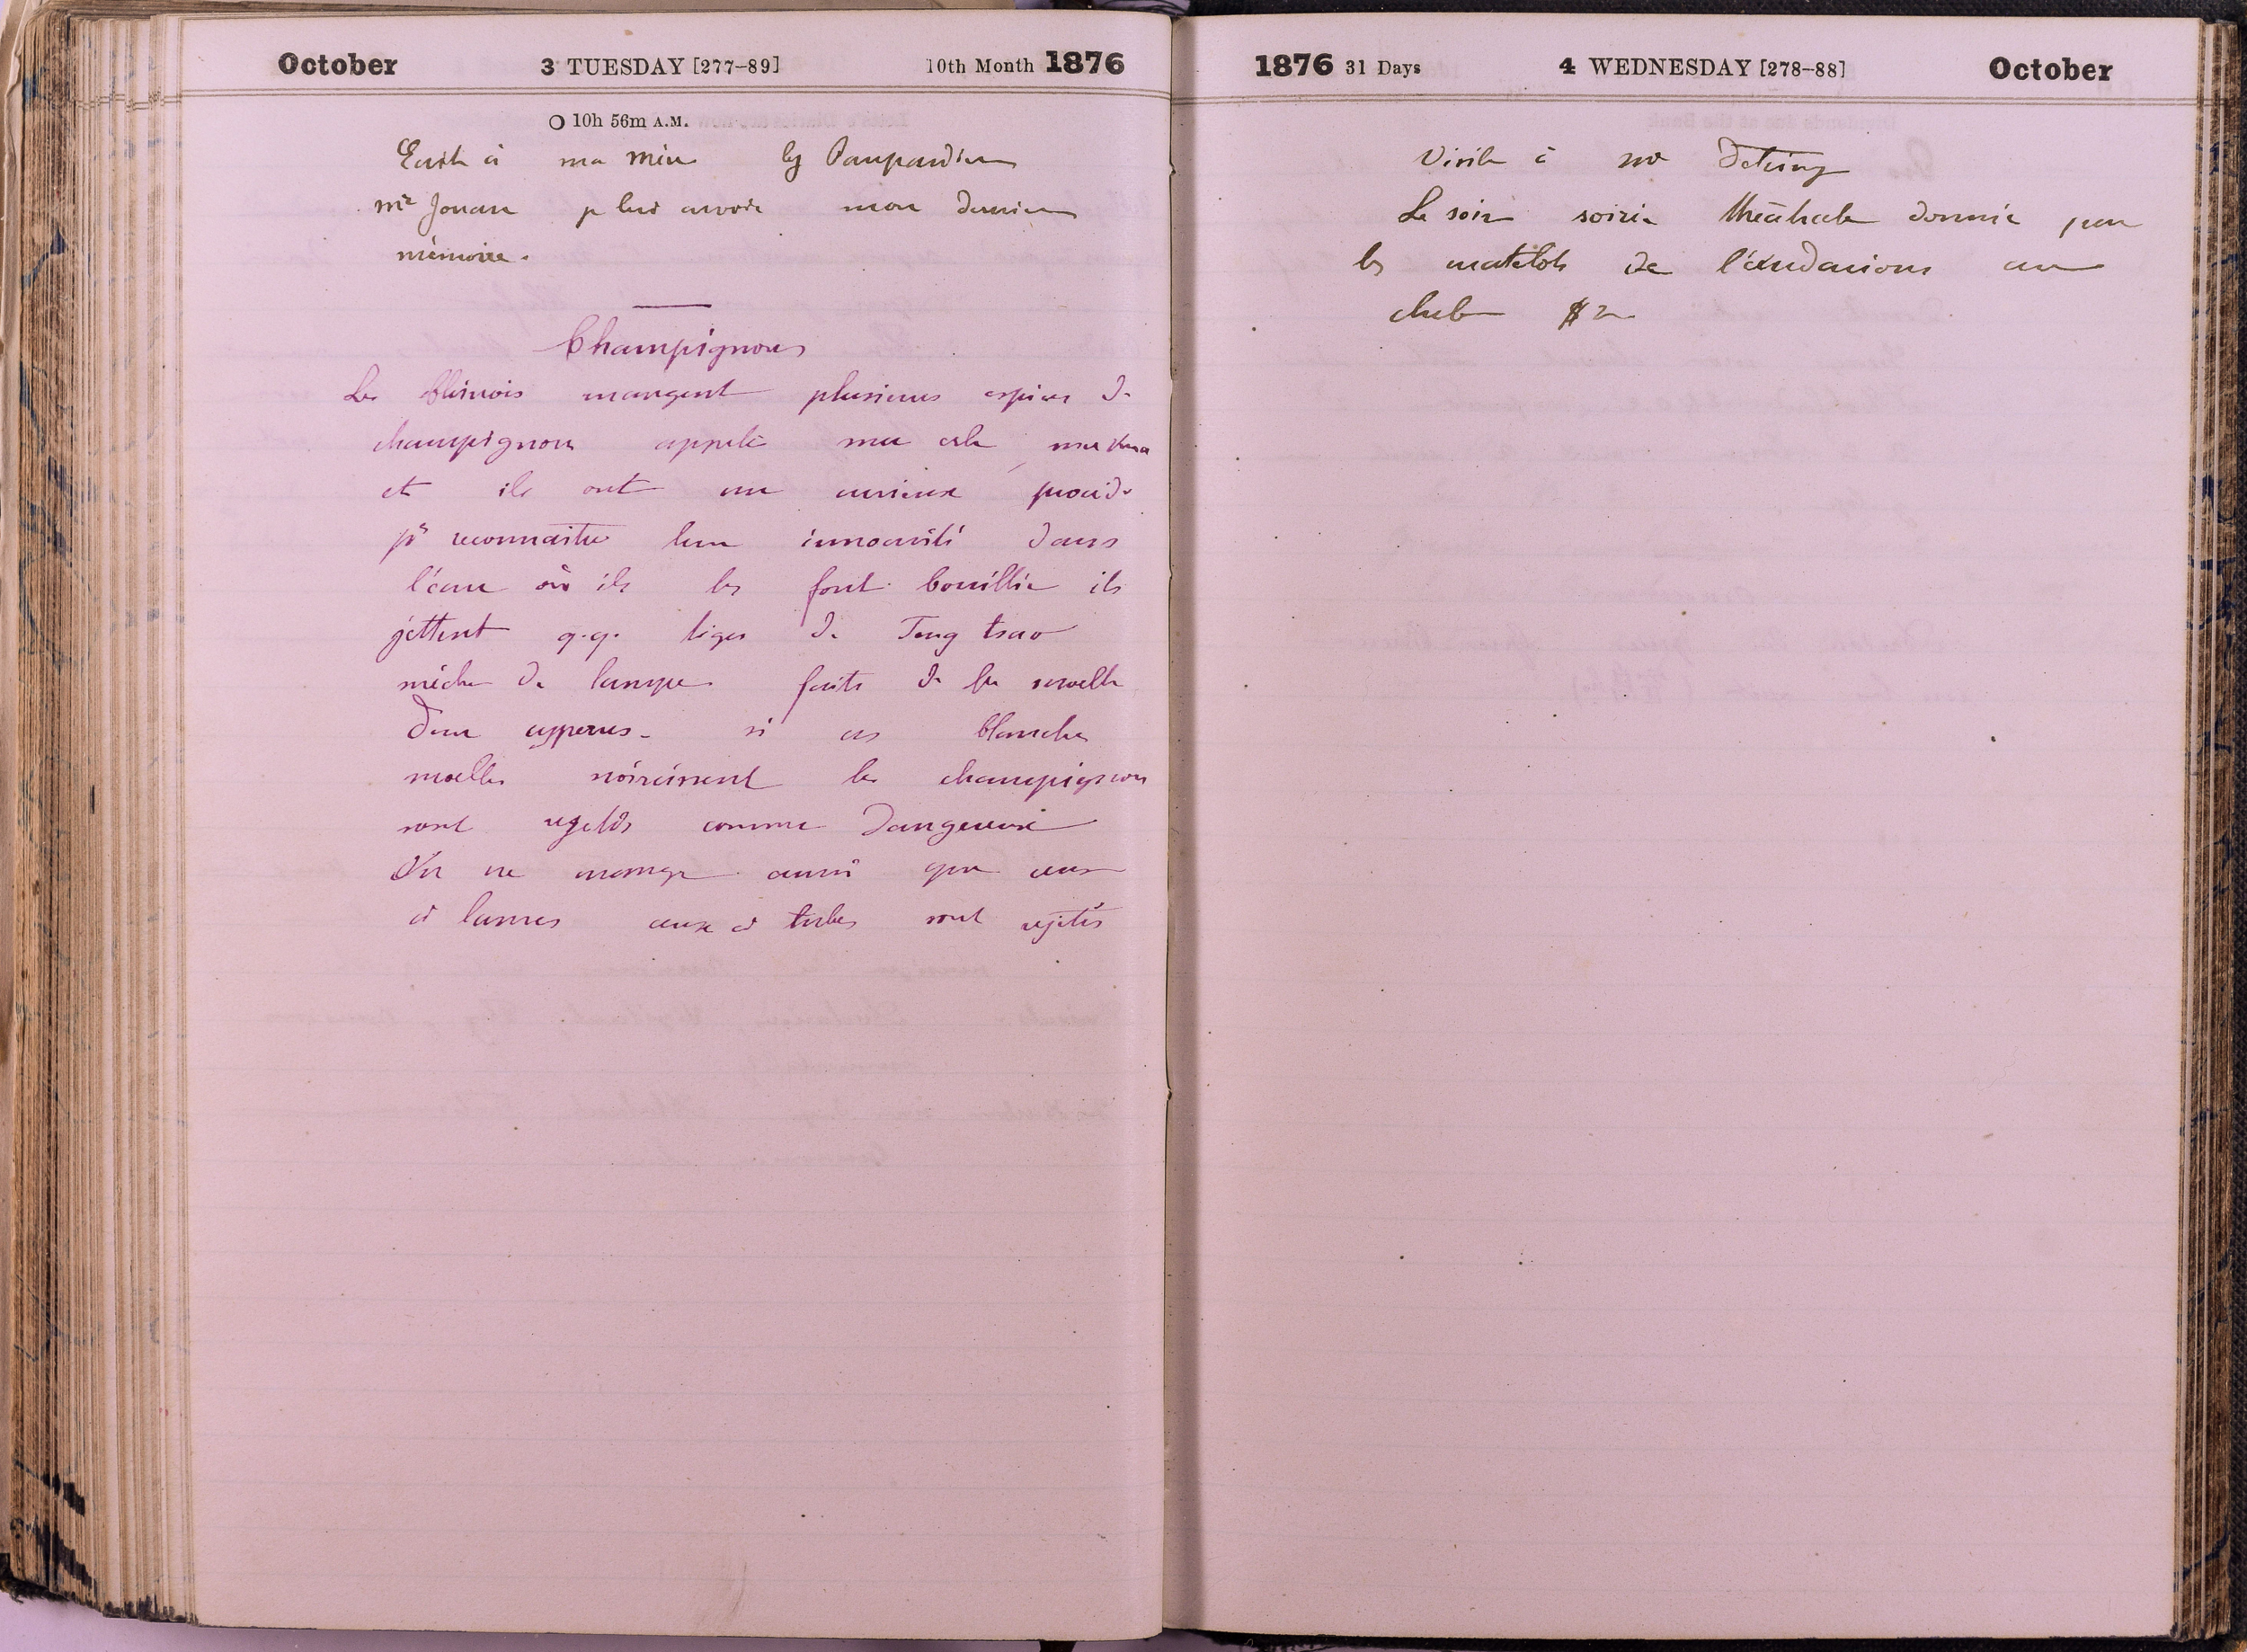 October 3 TUESDAY [277-89] 10th Month 1876
10h 56m A.M.
Ecrit à ma mère
Mr Jouan pr lui avoir mon dernier
mémoire.
Champignons
Les Chinois mangent plusieurs espèces de
champignons appelé
et ils ont un curieux procédé
pr reconnaitre leur innocuité dans
l'eau où ils les font bouillir ils
jettent q.q. tiges de Teng tsao
mèche de lampe faits de la moelle
d'un cyperus - si ces blanches
moelles noircissent les champignons
sont rejetés comme dangereux
On ne mange aussi que ceux
à lames ceux à tubes sont rejetés
1876 31 Days 4 WEDNESDAY [278-88] October
Visite à Mr Detring
Le soir soirée théâtrale donnée par
les matelots de l'audacious au
club $2